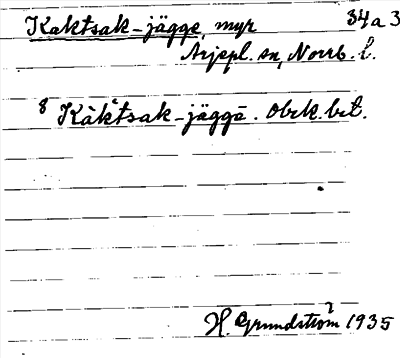 Kaktsak-jägge, myr 34 a 3
Arjepl. sn, Norrb. l.
8 Kàktsak-jäggē. Obek. bet.
H. Grundström 1935